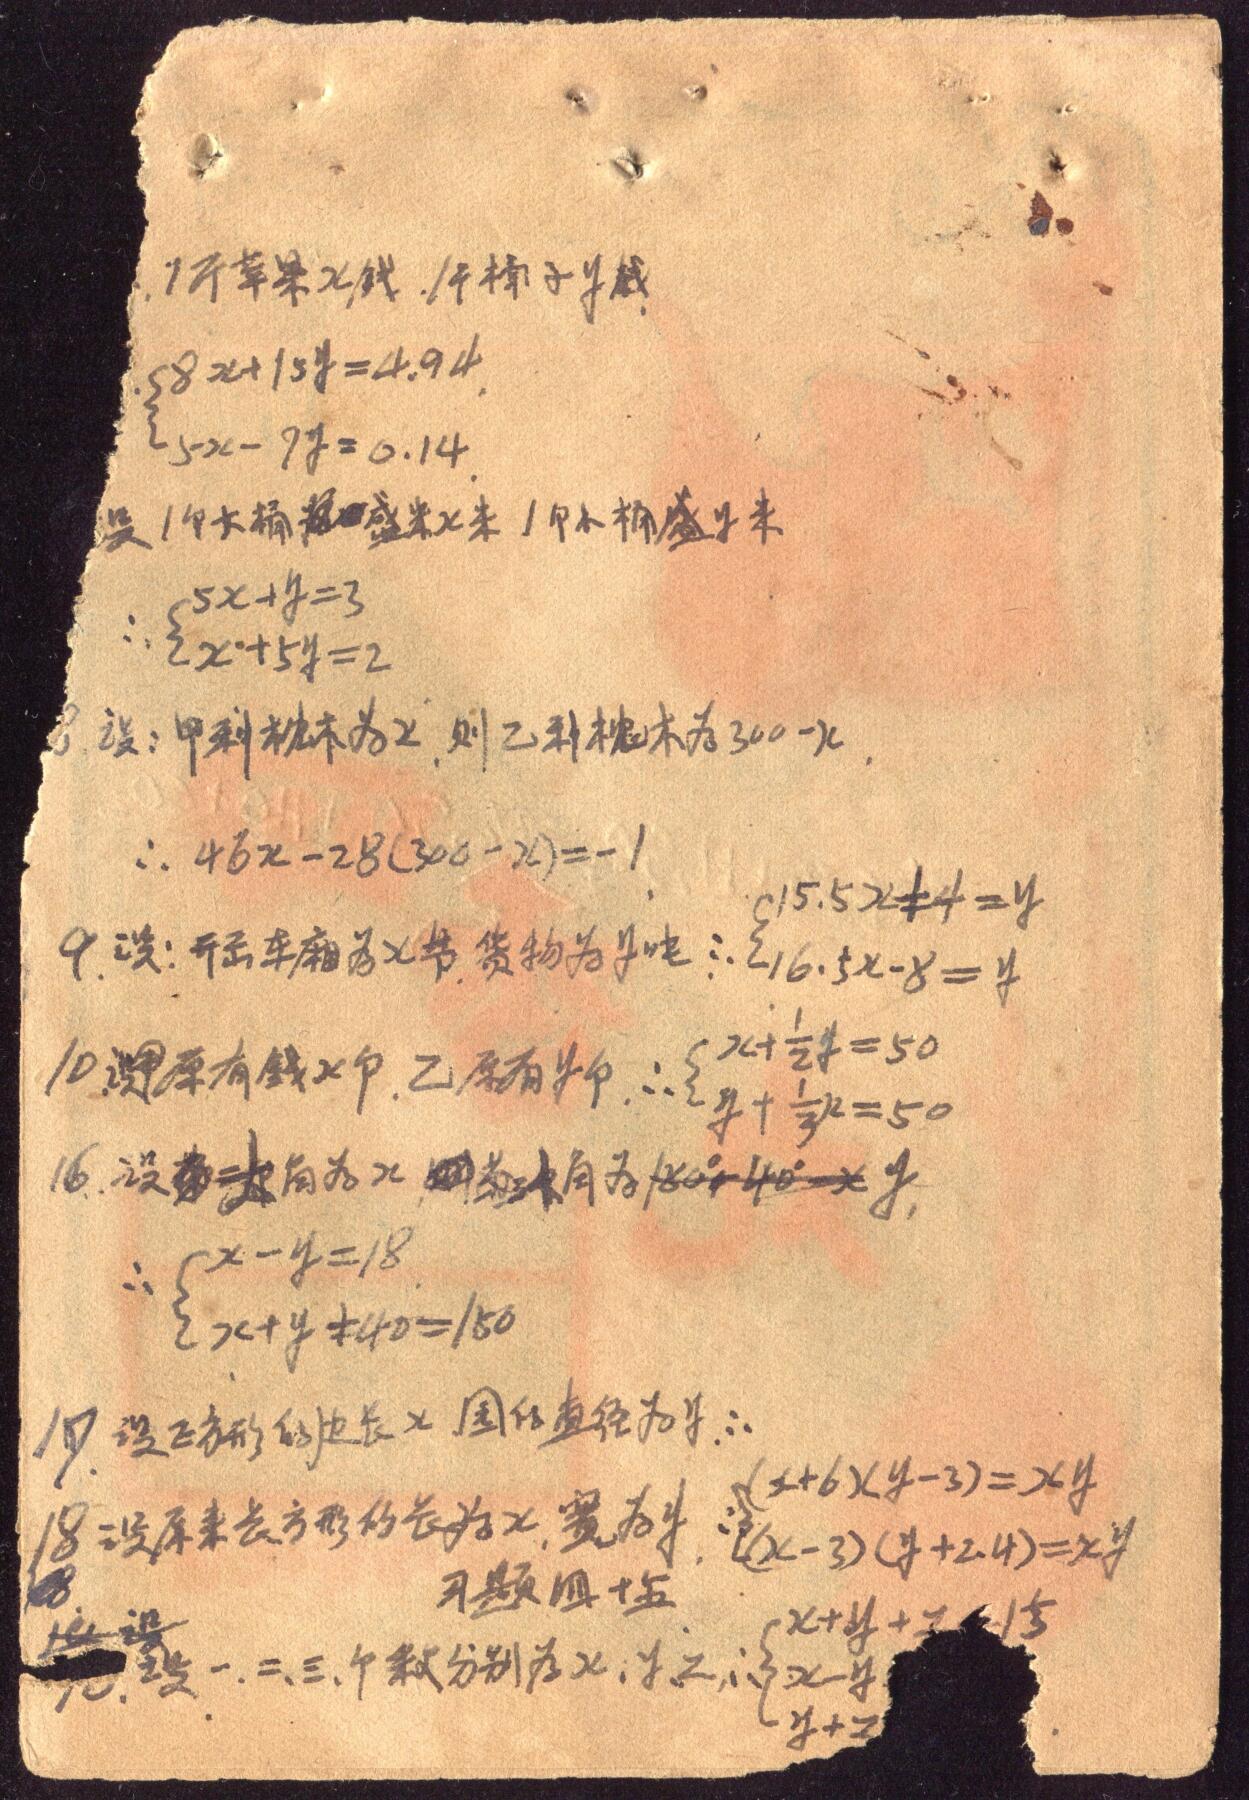 1斤苹果x钱.1斤桔子y钱
{8x+15y=4.94
5x-7y=0.14
设1个大桶盛米x米 1个小桶盛y米
∴{5x+y=3
x+5y=2
8 设:甲种枕木为x,则乙种枕木为300-x.
∴46x-28(300-x)=-1
9.设:开击车厢为x节,货物为y吨∴{15.5x+4=y
16.5x-8=y
10.设甲原有钱x个,乙原有y个.∴{x+1/2y=50
y+1/3x=50
16.设角为x 角为y,
∴{x-y=18
x+y+40=180
17.设正方形的边长x 圆的直径为y∴
18设原来长方形的长为x,宽为y.∴{(x+6)(y-3)=xy
(x-3)(y+2.4)=xy
习题四十五
设一.二.三.个数分别为x.y.z,∴{x+y+z 15
x-y
y+z